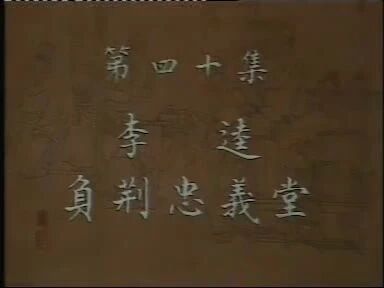 第四十集
李逵
負荆忠義堂